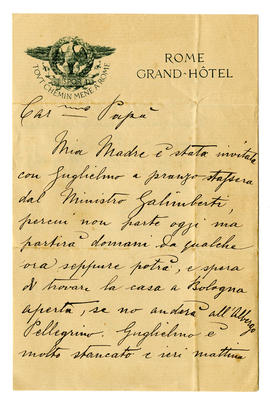 TOUT CHEMIN MÈNE A ROME
ROME
GRAND-HÔTEL
Car mo Papà
Mia Madre è stata invitata
con Guglielmo a pranzo stassera
dal Ministro Galimberti,
percui non parte oggi ma
partirà domani da qualche
ora seppure potrà, e spera
di trovare la casa a Bologna
aperta, se no anderà all'Albergo
Pellegrino. Guglielmo è
molto stancato e ieri mattina